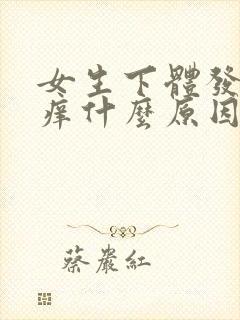 女生下體發
痒什麼原因
蔡嚴紅